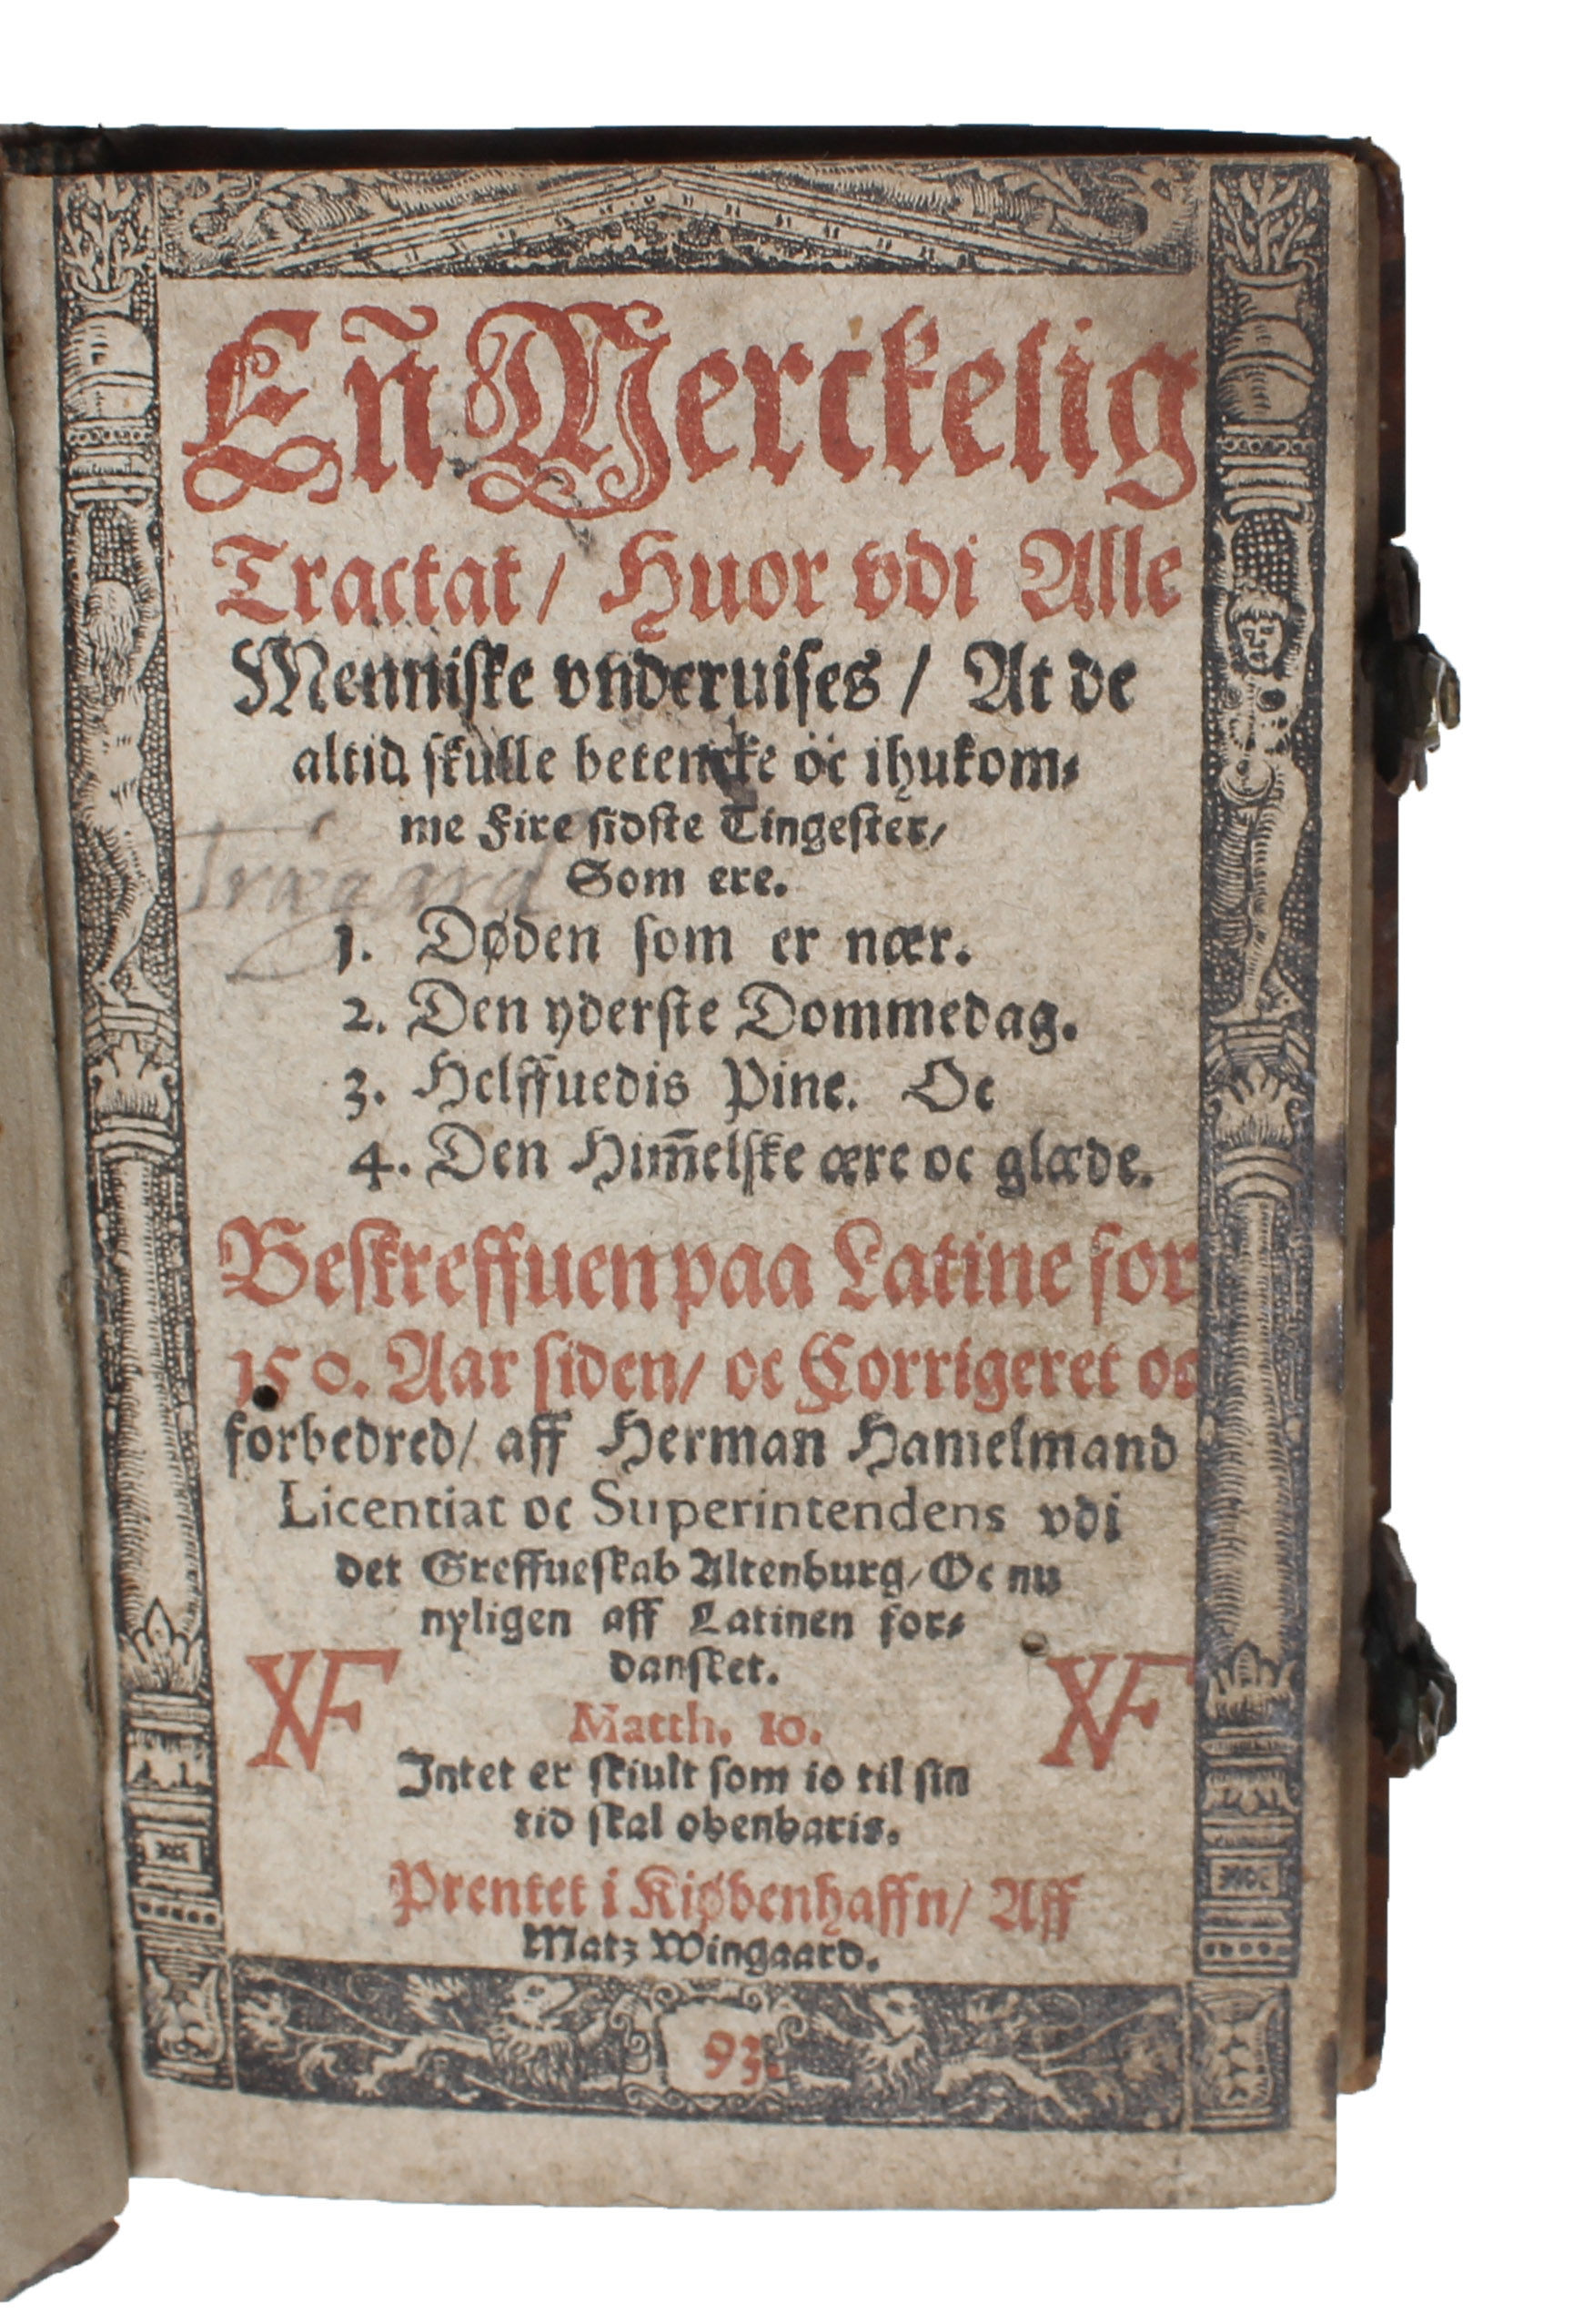 Eñ Merckelig
Tractat/ Huor vdi Alle
Menniske vnderuises/ At de
altid skulle betencke oc ihukom⸗
me Fire sidste Tingester/
Som ere.
Trægaard
1. Døden som er nær.
2. Den yderste Dommedag.
3. Helffuedis Pine. Oc
4. Den Him̃elske ære oc glæde.
Beskreffuen paa Latine for
150. Aar siden/ oc Corrigeret oc
forbedred/ aff Herman Hamelmand
Licentiat oc Superintendens vdi
det Greffueskab Altenburg/ Oc nu
nyligen aff Latinen for⸗
dansket.
Matth. 10.
Intet er skiult som io til sin
tid skal obenbaris.
Prentet i Kiøbenhaffn/ Aff
Matz Wingaard.
93.